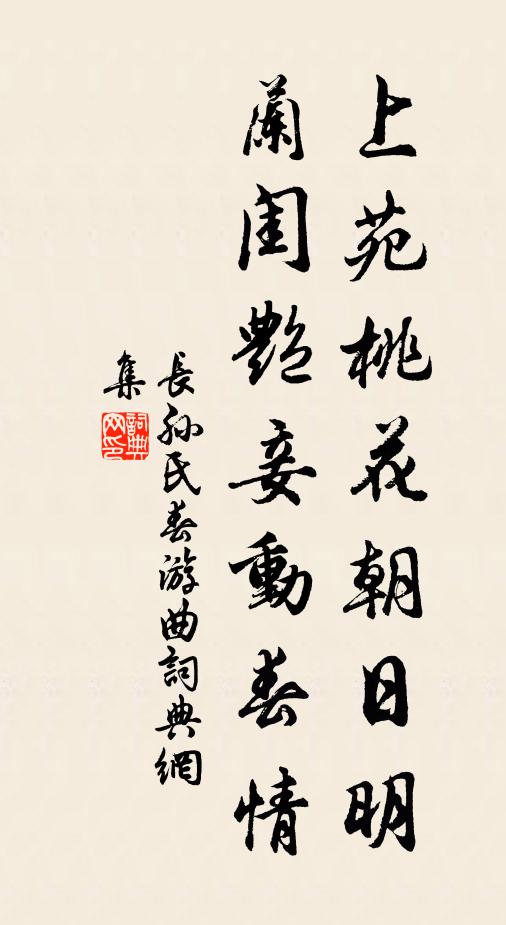 上苑桃花朝日明
蘭閨艷妾動春情
長孫氏春游曲詞典網
集
詞典
网印